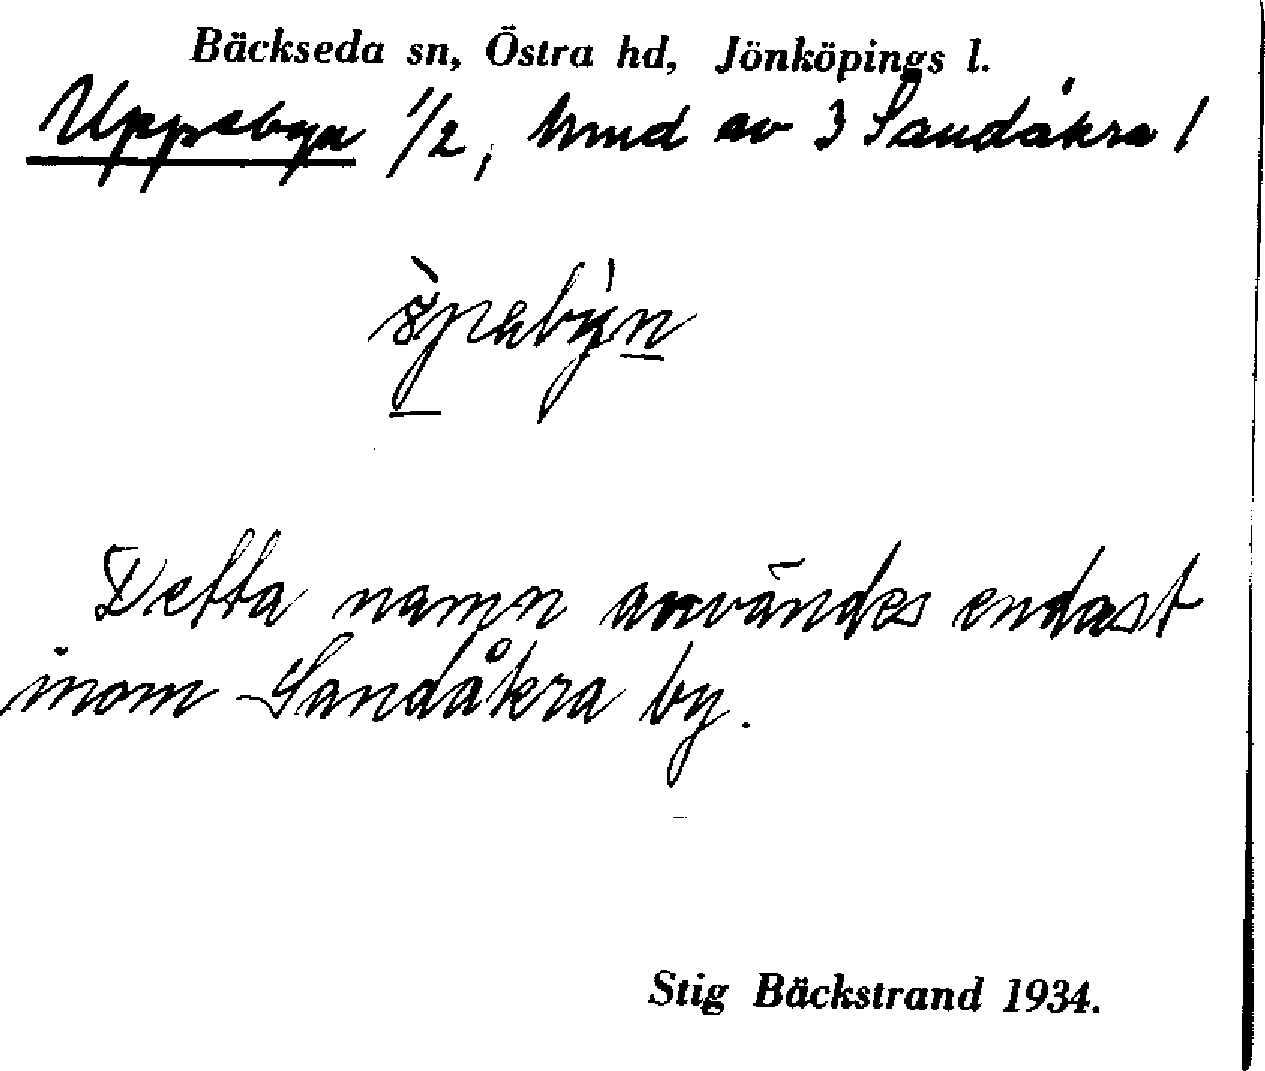 Bäckseda sn, Östra hd, Jönköpings l.
Uppebyn 1/2, hmd av 3 Sandåkra 1
Detta namn användes endast
inom Sandåkra by.
Stig Bäckstrand 1934.